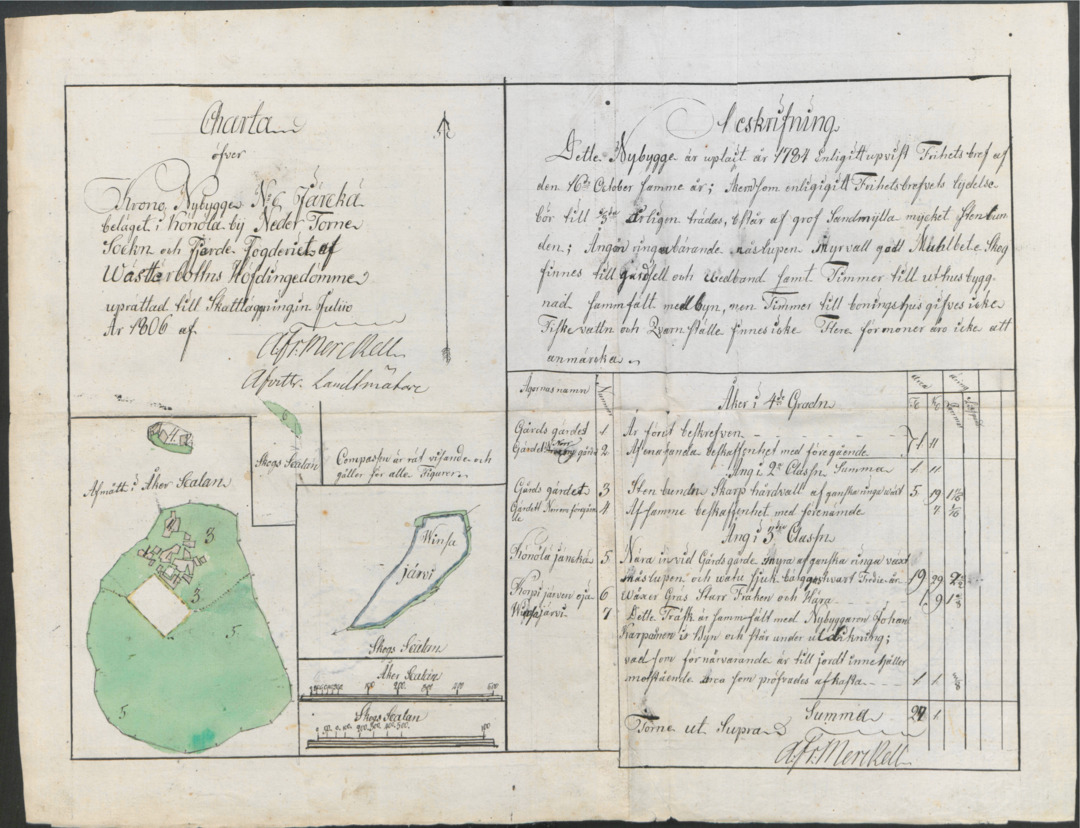 Charta
öfver
Krono Nybygget N:o 6 Jänckä
beläget i Konola by Neder Torne
Sockn och Fjerde Fögderiet af
Wästterbottns Höfdingedömme
uprättad till Skattläggning in Julio
År 1806 af
A. Fr: Merckell
Afvittr. Landtmätare
Afmätt i Åker Scalan
Skogs Scalan
Compassen är rätvisande och
gäller för alla Figurer
3
3
5
5
6
Winsa
järvi
Skogs Scalan
Åker Scalan
Skogs Scalan
Beskrifning
Detta Nybygge är uplagit år 1784 enligit upvist Frihetsbref af
den 16de October samme år; Åkern som enligit Frihetsbrefvets lydelse
bör till årligen trädas, består af grof Sandmylla mycket stenbun
den; Ängen ringa bärande näslupen Myrvall godt Muhlbete. Skog
finnes till gärdsell och wedbrand samt Timmer till uthusbygg
nad sammfält med byn, men Timmer till boningshus gifves icke
Fiske vattn och Qvarnställe finnes icke Flere förmoner äro icke att
anmärcka.
Ägornas namn Nummer
Åker i 4de Gradn
Gårds gärdet 1 Är förut beskrefven
2 Af enahanda beskaffenhet med föregående 11
Äng i 2a Classn Summa 1 11
Gårds gärdet 3 Stenbundn Skarp hårdvall af ganska ringa wärt 5 19
4 Af samme beskaffenhet med förenämde
Äng i 3die Classn
Konola jänckä 5 Nära invid Gårds gärde myra af ganska ringa växt
näslupen och watu sjuk. bärgas hwart Tredje år 19 29
Korpi järven oja 6 Wäxer Gräs Starr Fräken och Hära 1 9
Winsajärvi 7 Detta Träsk är sammfält med Nybyggaren Johan
Karponen i Byn och står under utdikning;
vad som för närvarande är till jordt innehåller
motstående area som pröfvades afkasta 1 1
Summa 27 1
Torne ut Supra
A. Fr: Merckell